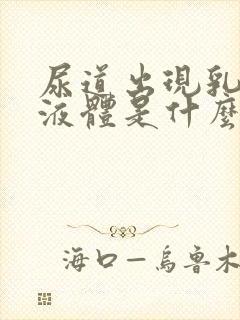 尿道出現乳
液體是什麼
海口—烏魯木